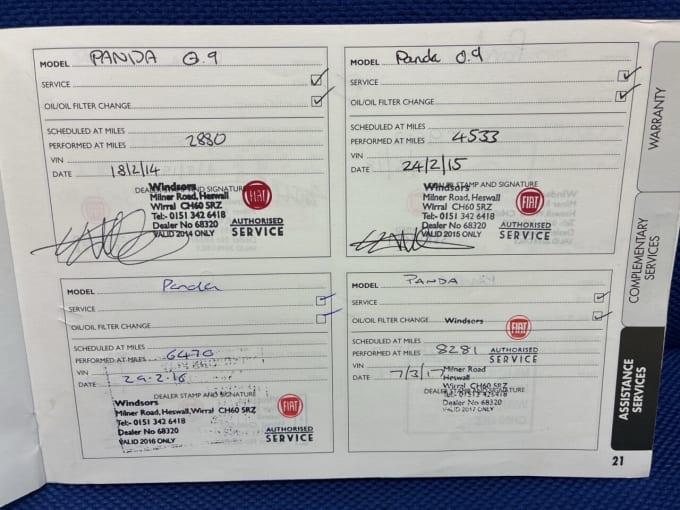 MODEL PANDA 0.9
SERVICE
OIL/OIL FILTER CHANGE
SCHEDULED AT MILES
PERFORMED AT MILES 2880
VIN
DATE 18/2/14
DEALER STAMP AND SIGNATURE
Windsors
Milner Road, Heswall
Wirral CH60 5RZ
Tel:- 0151 342 6418
Dealer No 68320
VALID 2014 ONLY
FIAT
AUTHORISED
SERVICE
MODEL Panda 0.9
SERVICE
OIL/OIL FILTER CHANGE
SCHEDULED AT MILES
PERFORMED AT MILES 4533
VIN
DATE 24/2/15
DEALER STAMP AND SIGNATURE
Windsors
Milner Road, Heswall
Wirral CH60 5RZ
Tel:- 0151 342 6418
Dealer No 68320
VALID 2015 ONLY
FIAT
AUTHORISED
SERVICE
MODEL Panda
SERVICE
OIL/OIL FILTER CHANGE
SCHEDULED AT MILES
PERFORMED AT MILES 6470
VIN
DATE 29-2-16
DEALER STAMP AND SIGNATURE
Windsors
Milner Road, Heswall, Wirral CH60 5RZ
Tel:- 0151 342 6418
Dealer No 68320
VALID 2016 ONLY
FIAT
AUTHORISED
SERVICE
MODEL PANDA
SERVICE
OIL/OIL FILTER CHANGE Windsors
FIAT
SCHEDULED AT MILES
PERFORMED AT MILES 8281
AUTHORISED
SERVICE
VIN
DATE 7/3/17
Milner Road
Heswall
Wirral CH60 5RZ
DEALER STAMP AND SIGNATURE
Tel:- 01513 426418
Dealer No 68320
VALID 2017 ONLY
WARRANTY
COMPLEMENTARY
SERVICES
ASSISTANCE
SERVICES
21